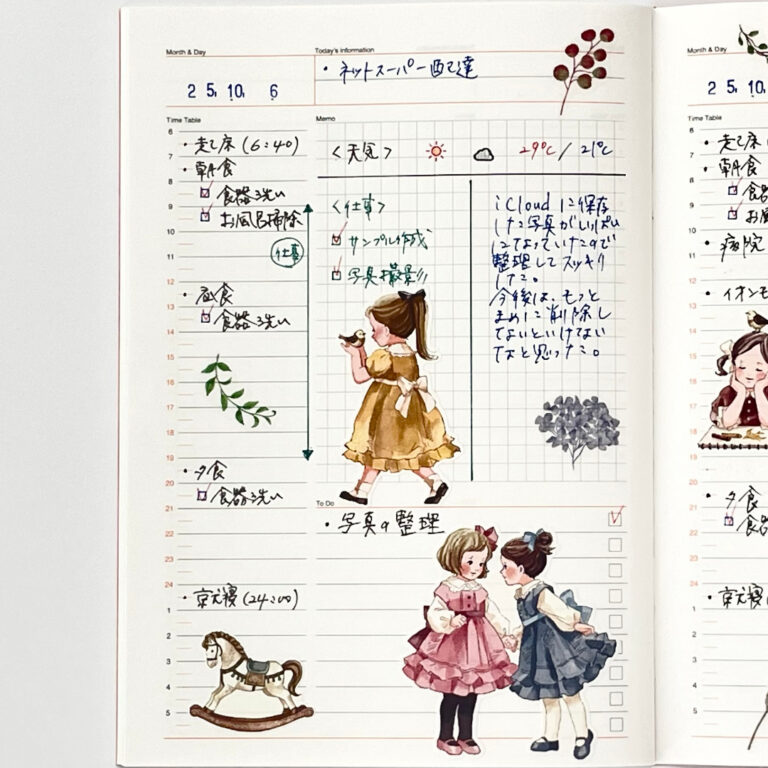 Month & Day
25, 10, 6
Today's information
・ネットスーパー配達
Time Table
6
・起床 (6:40)
7
・朝食
8
食器洗い
9
お風呂掃除
10
11
仕事
12
13
・昼食
14
食器洗い
15
16
17
18
19
・夕食
20
食器洗い
21
22
23
24
・就寝 (24:00)
1
2
3
4
5
Memo
<天気> 29℃ / 21℃
<仕事>
サンプル作成
写真撮影
iCloudに保存
した写真がいっぱい
になっていたので
整理してスッキリ
した。
今後は、もっと
まめに削除し
ないといけない
なと思った。
To Do
・写真の整理
Month & Day
25, 10,
Time Table
6
・起床
7
・朝食
8
食器
9
お風
10
・病院
11
12
・イオンモ
13
14
15
16
17
18
19
20
・夕食
21
食器
22
23
24
・就寝
1
2
3
4
5